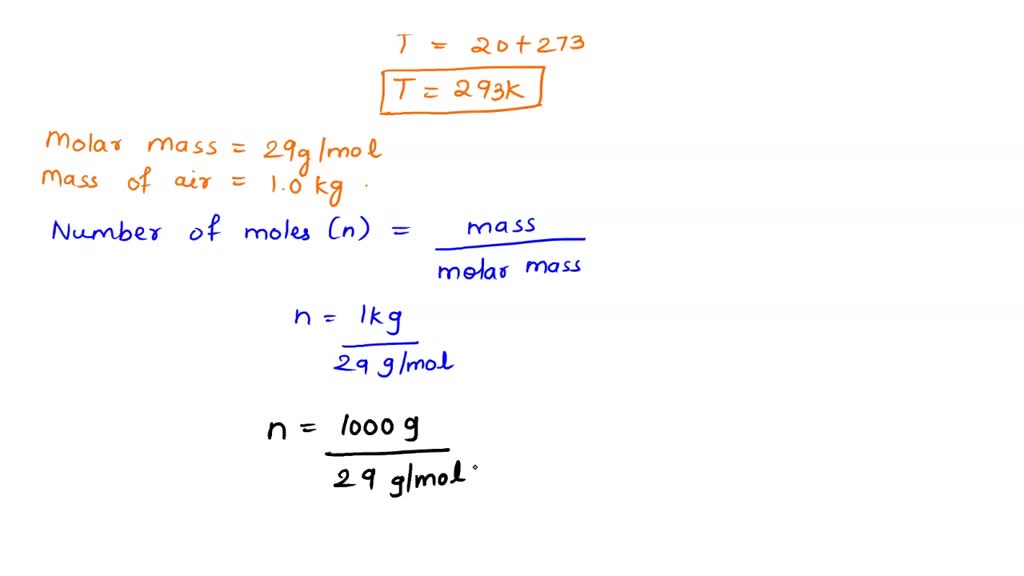 T = 20+273
T = 293K
Molar mass = 29g/mol
Mass of air = 1.0 kg.
Number of moles (n) = mass
molar mass
n = 1kg
29 g/mol
n = 1000 g
29 g/mol